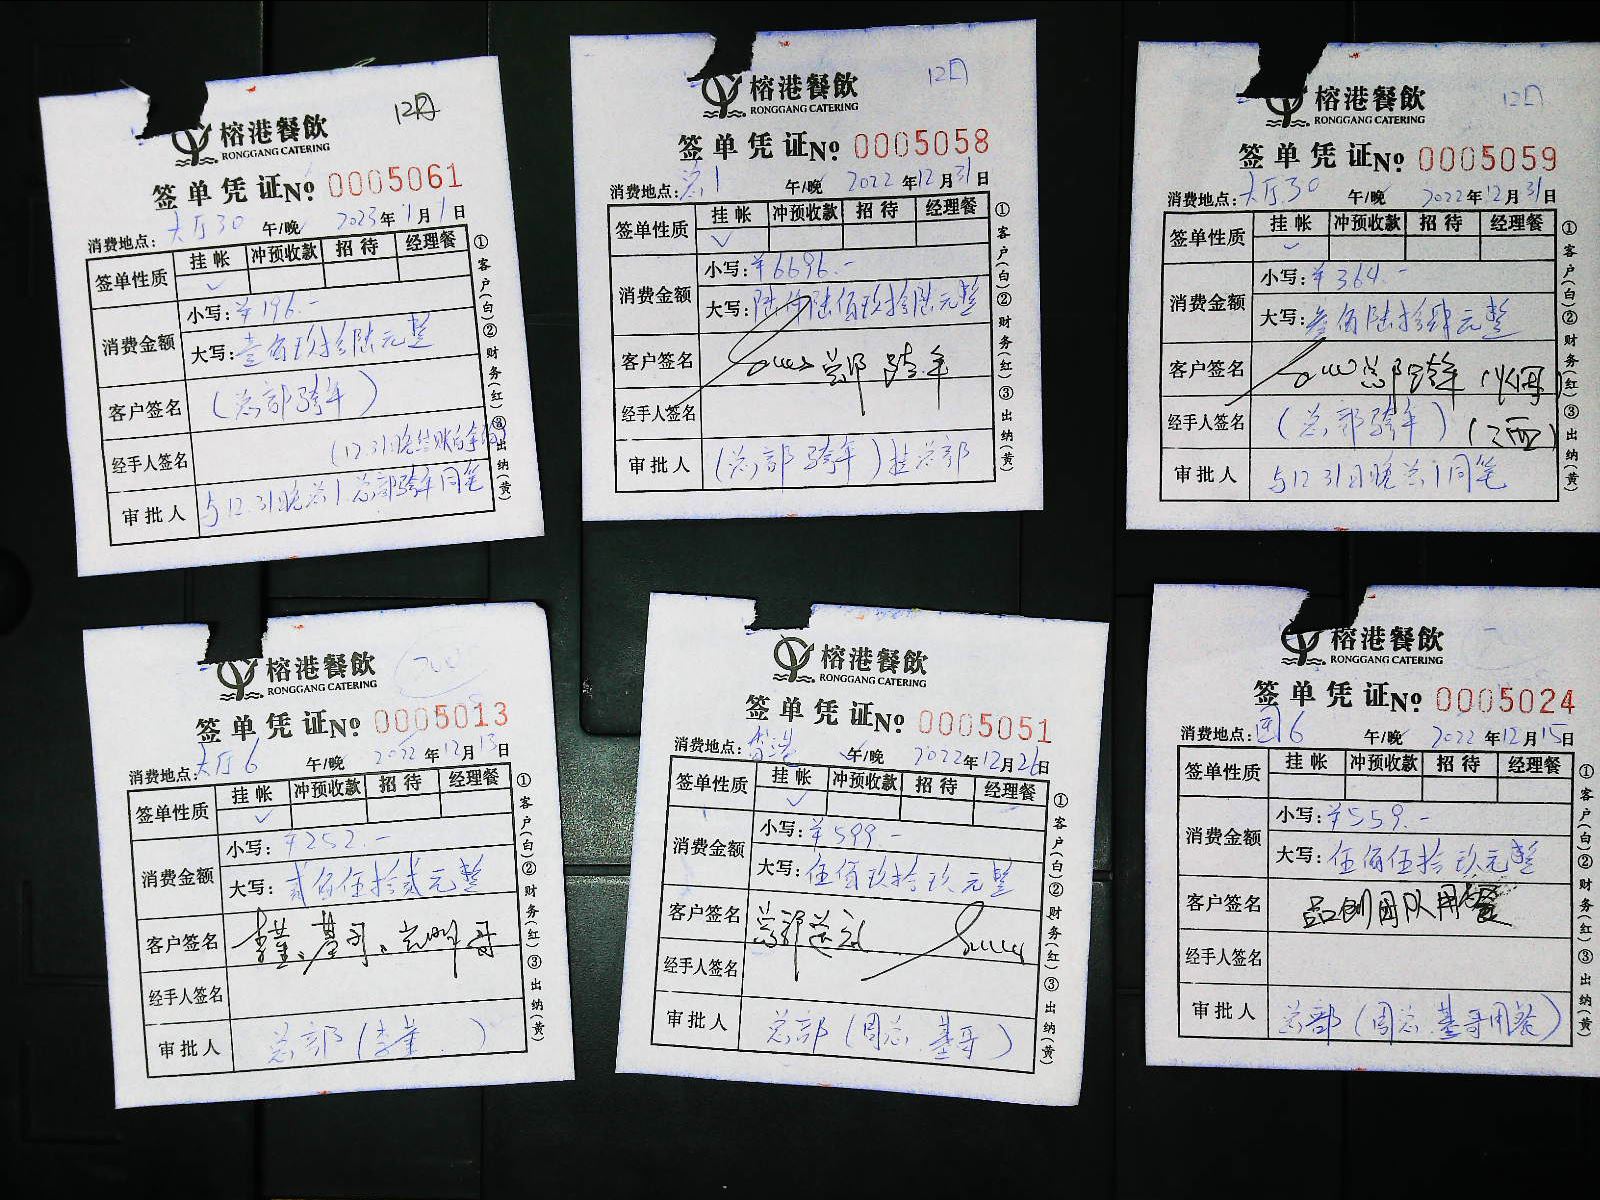 12月
榕港餐飲
RONGGANG CATERING
签单凭证№ 0005061
消费地点: 大厅30 午/晚 2023年1月1日
签单性质 挂帐 冲预收款 招待 经理餐
✓
消费金额 小写: ¥196.-
大写: 壹佰玖拾陆元整
客户签名 (总部跨年)
经手人签名
审批人 与12.31晚总1总部跨年同笔
①客户(白)②财务(红)③出纳(黄)
12月
榕港餐飲
RONGGANG CATERING
签单凭证№ 0005058
消费地点: 总1 午/晚 2022年12月31日
签单性质 挂帐 冲预收款 招待 经理餐
✓
消费金额 小写: ¥6696.-
大写: 陆仟陆佰玖拾陆元整
客户签名 总部 跨年
经手人签名
审批人 (总部跨年)挂总部
①客户(白)②财务(红)③出纳(黄)
12月
榕港餐飲
RONGGANG CATERING
签单凭证№ 0005059
消费地点: 大厅30 午/晚 2022年12月31日
签单性质 挂帐 冲预收款 招待 经理餐
✓
消费金额 小写: ¥364.-
大写: 叁佰陆拾肆元整
客户签名 总部跨年
经手人签名 (总部跨年)
审批人 与12.31日晚总1同笔
①客户(白)②财务(红)③出纳(黄)
榕港餐飲
RONGGANG CATERING
签单凭证№ 0005013
消费地点: 大厅6 午/晚 2022年12月13日
签单性质 挂帐 冲预收款 招待 经理餐
✓
消费金额 小写: ¥252.-
大写: 贰佰伍拾贰元整
客户签名 李董、基哥、
经手人签名
审批人 总部(李董)
①客户(白)②财务(红)③出纳(黄)
榕港餐飲
RONGGANG CATERING
签单凭证№ 0005051
消费地点: 香港 午/晚 2022年12月26日
签单性质 挂帐 冲预收款 招待 经理餐
✓
消费金额 小写: ¥599.-
大写: 伍佰玖拾玖元整
客户签名 总部
经手人签名
审批人 总部(周总、基哥)
①客户(白)②财务(红)③出纳(黄)
榕港餐飲
RONGGANG CATERING
签单凭证№ 0005024
消费地点: 团6 午/晚 2022年12月15日
签单性质 挂帐 冲预收款 招待 经理餐
消费金额 小写: ¥559.-
大写: 伍佰伍拾玖元整
客户签名 品创团队用餐
经手人签名
审批人 总部(周总、基哥用餐)
①客户(白)②财务(红)③出纳(黄)